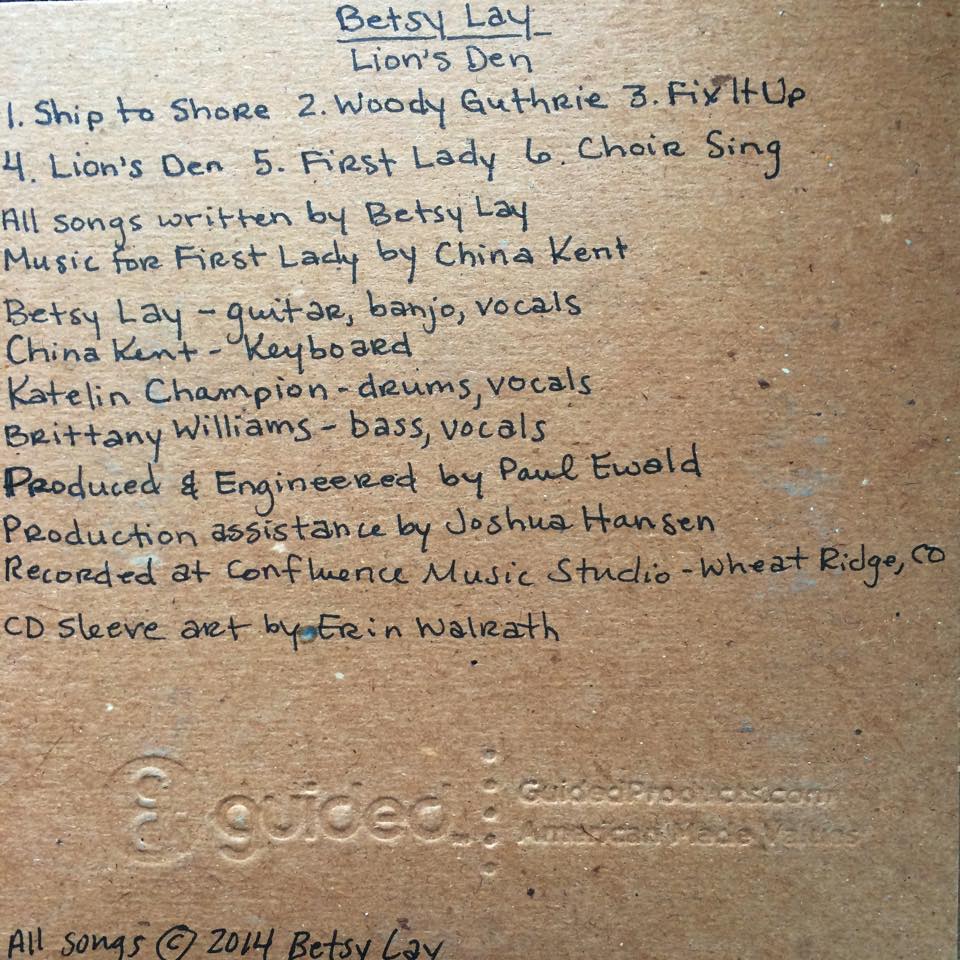 Betsy Lay
Lion's Den
1. Ship to Shore 2. Woody Guthrie 3. Fix It Up
4. Lion's Den 5. First Lady 6. Choir Sing
All songs written by Betsy Lay
Music for First Lady by China Kent
Betsy Lay - guitar, banjo, vocals
China Kent - Keyboard
Katelin Champion - drums, vocals
Brittany Williams - bass, vocals
Produced & Engineered by Paul Ewald
Production assistance by Joshua Hansen
Recorded at Confluence Music Studio - Wheat Ridge, CO
CD sleeve art by Erin Walrath
guided
GuidedProducts.com
American Made Values
All songs © 2014 Betsy Lay